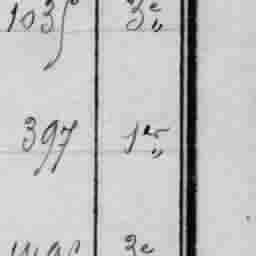 1035 3e„
397 1er„
3e